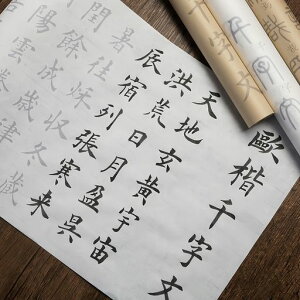 歐楷千字文
天地玄黃宇宙
洪荒日月盈昃
辰宿列張寒來
暑往秋收冬藏
閏餘成歲律
陽雲
千字文